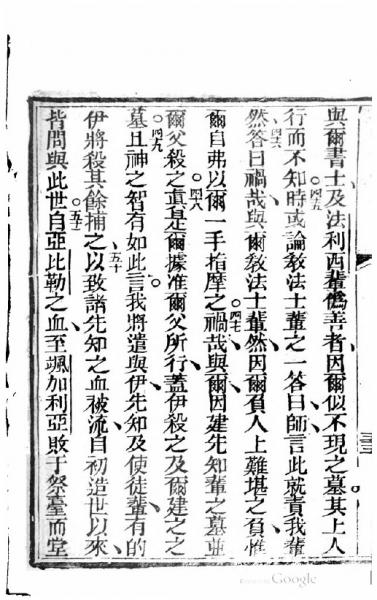 與爾書士及法利西輩偽善者因爾似不現之墓其上人
行而不知四五時或論教法士輩之一答曰師言此就責我輩
四六然答曰禍哉與爾教法士輩然因爾負人上難堪之負惟
爾自弗以爾一手指摩之四七禍哉與爾因建先知輩之墓並
爾父殺之四八真是爾據准爾父所行蓋伊殺之及爾建之之
墓四九且神之智有如此言我將遣與伊先知及使徒輩有的
伊將殺其餘捕之五十以致諸先知之血被流自初造世以來
皆問與此世五十自亞比勒之血至颯加利亞敗于祭臺而堂
Google